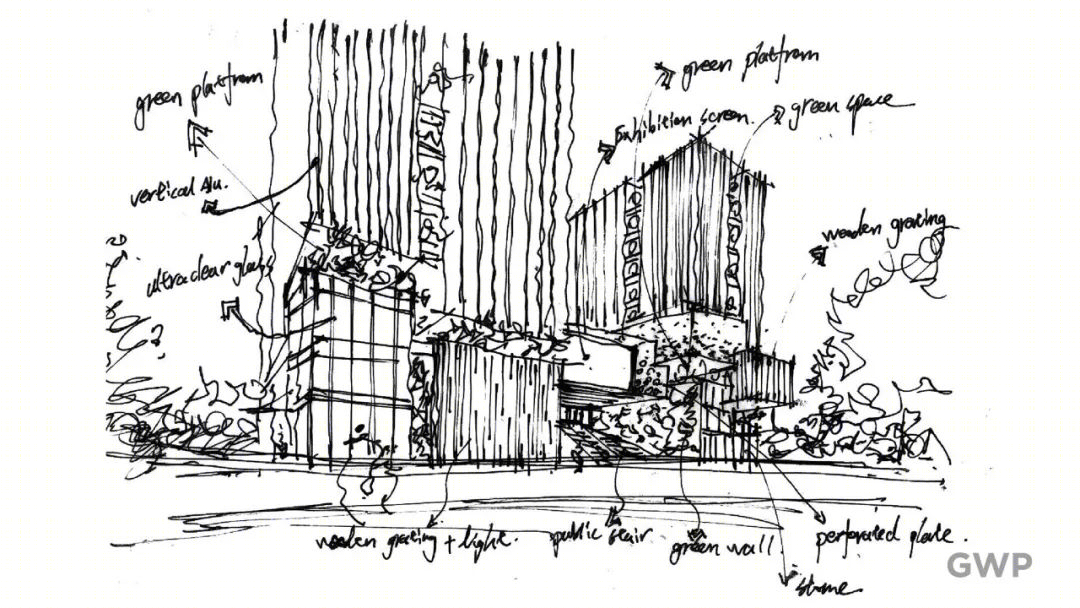 green platfrom
green platfrom
Exhibition screen.
green space
vertical Alu.
wooden grating
ultraclear glass
wooden grating + light.
public stair
green wall
perforated plate.
stone
GWP